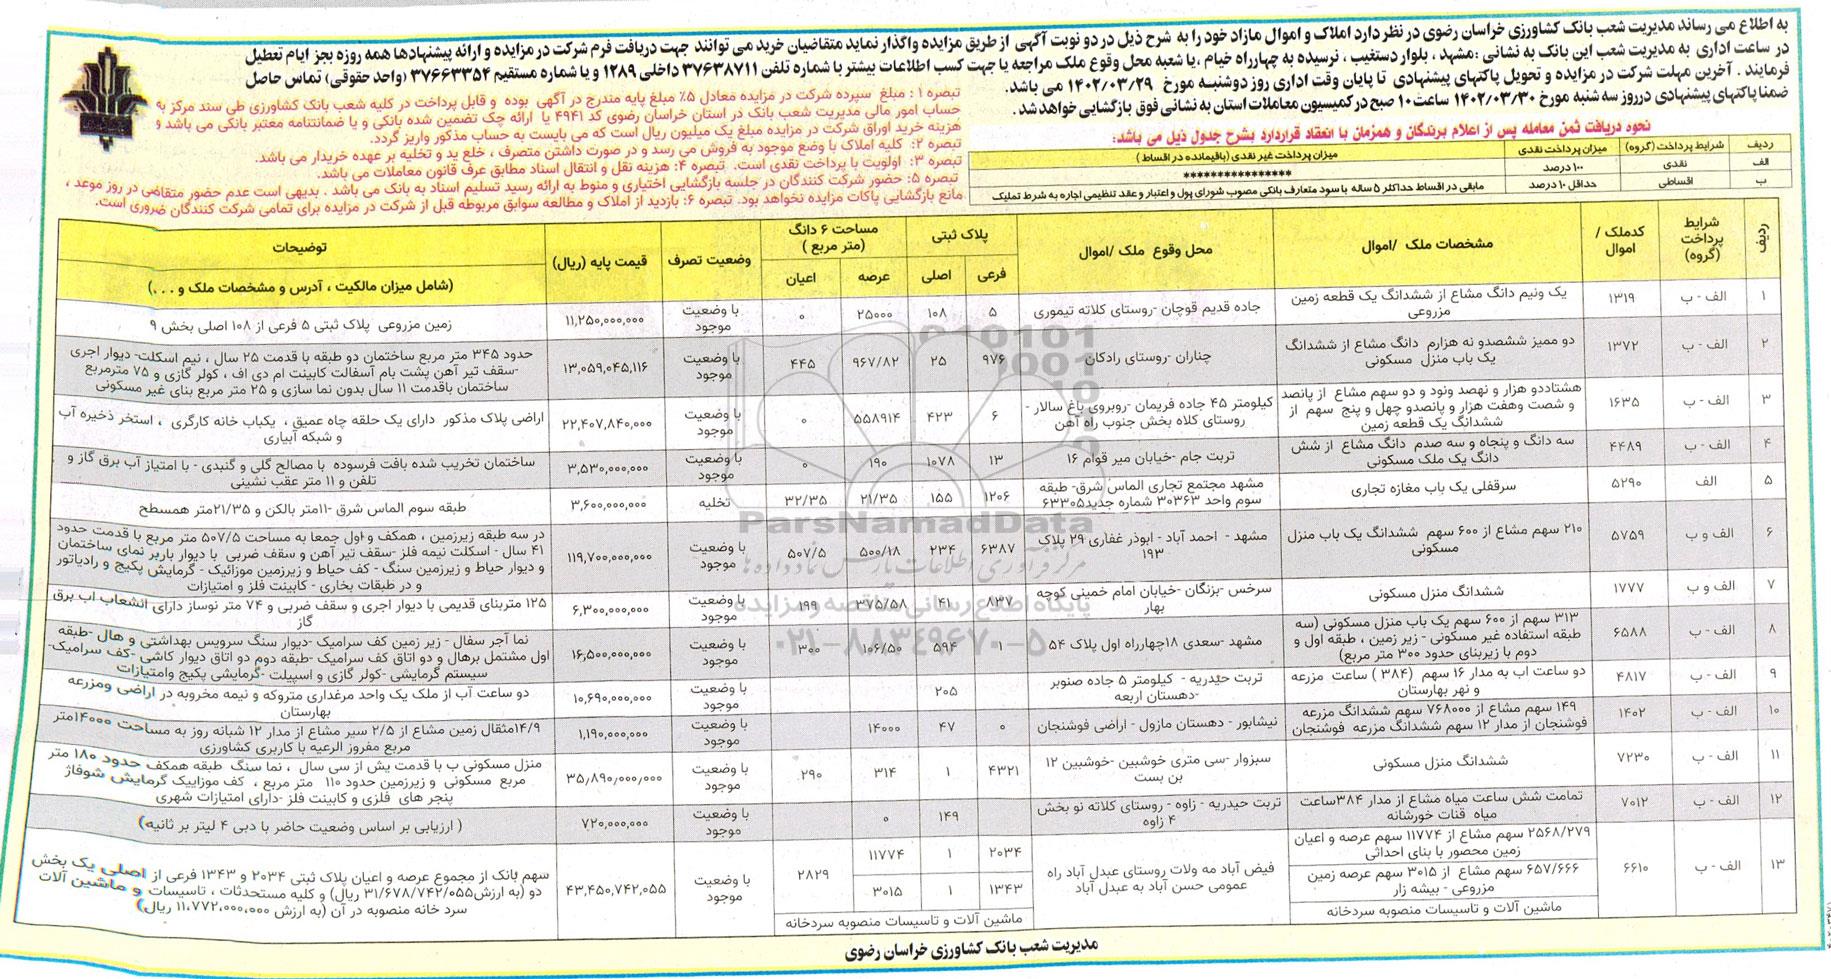 به اطلاع می رساند مدیریت شعب بانک کشاورزی خراسان رضوی در نظر دارد املاک و اموال مازاد خود را به شرح ذیل در دو نوبت آگهی از طریق مزایده واگذار نماید متقاضیان خرید می توانند جهت دریافت فرم شرکت در مزایده و ارائه پیشنهادها همه روزه بجز ایام تعطیل
در ساعت اداری به مدیریت شعب این بانک به نشانی : مشهد ، بلوار دستغیب ، نرسیده به چهارراه خیام ، یا شعبه محل وقوع ملک مراجعه یا جهت کسب اطلاعات بیشتر با شماره تلفن ۳۷۶۳۸۷۱۱ داخلی ۱۲۸۹ و یا شماره مستقیم ۳۷۶۶۳۳۵۴ (واحد حقوقی) تماس حاصل
فرمایند . آخرین مهلت شرکت در مزایده و تحویل پاکتهای پیشنهادی تا پایان وقت اداری روز دوشنبه مورخ ۱۴۰۲/۰۳/۲۹ می باشد.
ضمنا پاکتهای پیشنهادی در روز سه شنبه مورخ ۱۴۰۲/۰۳/۳۰ ساعت ۱۰ صبح در کمیسیون معاملات استان به نشانی فوق بازگشایی خواهد شد.
نحوه دریافت ثمن معامله پس از اعلام برندگان و همزمان با انعقاد قرارداد بشرح جدول ذیل می باشد:
ردیف شرایط پرداخت (گروه) میزان پرداخت نقدی میزان پرداخت غیر نقدی (باقیمانده در اقساط )
الف نقدی ۱۰۰ درصد ****************
ب اقساطی حداقل ۱۰ درصد مابقی در اقساط حداکثر ۵ ساله با سود متعارف بانکی مصوب شورای پول و اعتبار و عقد تنظیمی اجاره به شرط تملیک
تبصره ۱ : مبلغ سپرده شرکت در مزایده معادل ۵٪ مبلغ پایه مندرج در آگهی بوده و قابل پرداخت در کلیه شعب بانک کشاورزی طی سند مرکز به
حساب امور مالی مدیریت شعب بانک در استان خراسان رضوی کد ۴۹۴۱ یا ارائه چک تضمین شده بانکی و یا ضمانتنامه معتبر بانکی می باشد و
هزینه خرید اوراق شرکت در مزایده مبلغ یک میلیون ریال است که می بایست به حساب مذکور واریز گردد.
تبصره ۲: کلیه املاک با وضع موجود به فروش می رسد و در صورت داشتن متصرف ، خلع ید و تخلیه بر عهده خریدار می باشد.
تبصره ۳: اولویت با پرداخت نقدی است. تبصره ۴: هزینه نقل و انتقال اسناد مطابق عرف قانون معاملات می باشد.
تبصره ۵: حضور شرکت کنندگان در جلسه بازگشایی اختیاری و منوط به ارائه رسید تسلیم اسناد به بانک می باشد . بدیهی است عدم حضور متقاضی در روز موعد ،
مانع بازگشایی پاکات مزایده نخواهد بود. تبصره ۶: بازدید از املاک و مطالعه سوابق مربوطه قبل از شرکت در مزایده برای تمامی شرکت کنندگان ضروری است.
ردیف شرایط پرداخت (گروه) کدملک / اموال مشخصات ملک /اموال محل وقوع ملک /اموال پلاک ثبتی مساحت ۶ دانگ (متر مربع ) وضعیت تصرف قیمت پایه (ریال) توضیحات
فرعی اصلی عرصه اعیان (شامل میزان مالکیت ، آدرس و مشخصات ملک و . . .)
۱ الف - ب ۱۳۱۹ یک ونیم دانگ مشاع از ششدانگ یک قطعه زمین مزروعی جاده قدیم قوچان -روستای کلاته تیموری ۵ ۱۰۸ ۲۵۰۰۰ ۰ با وضعیت موجود ۱۱,۲۵۰,۰۰۰,۰۰۰ زمین مزروعی پلاک ثبتی ۵ فرعی از ۱۰۸ اصلی بخش ۹
۲ الف - ب ۱۳۷۲ دو ممیز ششصدو نه هزارم دانگ مشاع از ششدانگ یک باب منزل مسکونی چناران -روستای رادکان ۹۷۶ ۲۵ ۹۶۷/۸۲ ۴۴۵ با وضعیت موجود ۱۳,۰۵۹,۰۴۵,۱۱۶ حدود ۳۴۵ متر مربع ساختمان دو طبقه با قدمت ۲۵ سال ، نیم اسکلت- دیوار اجری -سقف تیر آهن پشت بام آسفالت کابینت ام دی اف ، کولر گازی و ۷۵ مترمربع ساختمان باقدمت ۱۱ سال بدون نما سازی و ۲۵ متر مربع بنای غیر مسکونی
۳ الف - ب ۱۶۳۵ هشتاددو هزار و نهصد ونود و دو سهم مشاع از پانصد و شصت وهفت هزار و پانصدو چهل و پنج سهم از ششدانگ یک قطعه زمین کیلومتر ۴۵ جاده فریمان -روبروی باغ سالار - روستای کلاه بخش جنوب راه آهن ۶ ۴۲۳ ۵۵۸۹۱۴ ۰ با وضعیت موجود ۲۲,۴۰۷,۸۴۰,۰۰۰ اراضی پلاک مذکور دارای یک حلقه چاه عمیق ، یکباب خانه کارگری ، استخر ذخیره آب و شبکه آبیاری
۴ الف - ب ۴۴۸۹ سه دانگ و پنجاه و سه صدم دانگ مشاع از شش دانگ یک ملک مسکونی تربت جام -خیابان میر قوام ۱۶ ۱۳ ۱۰۷۸ ۱۹۰ ۰ با وضعیت موجود ۳,۵۳۰,۰۰۰,۰۰۰ ساختمان تخریب شده بافت فرسوده با مصالح گلی و گنبدی - با امتیاز آب برق گاز و تلفن و ۱۱ متر عقب نشینی
۵ الف ۵۲۹۰ سرقفلی یک باب مغازه تجاری مشهد مجتمع تجاری الماس شرق- طبقه سوم واحد ۳۰۳۶۳ شماره جدید۶۳۳۰۵ ۱۲۰۶ ۱۵۵ ۲۱/۳۵ ۳۲/۳۵ تخلیه ۳,۶۰۰,۰۰۰,۰۰۰ طبقه سوم الماس شرق -۱۱متر بالکن و ۲۱/۳۵متر همسطح
۶ الف و ب ۵۷۵۹ ۲۱۰ سهم مشاع از ۶۰۰ سهم ششدانگ یک باب منزل مسکونی مشهد - احمد آباد - ابوذر غفاری ۲۹ پلاک ۱۹۳ ۶۳۸۷ ۲۳۴ ۵۰۰/۱۸ ۵۰۷/۵ با وضعیت موجود ۱۱۹,۷۰۰,۰۰۰,۰۰۰ در سه طبقه زیرزمین ، همکف و اول جمعا به مساحت ۵۰۷/۵ متر مربع با قدمت حدود ۴۱ سال - اسکلت نیمه فلز -سقف تیر آهن و سقف ضربی با دیوار باربر نمای ساختمان و دیوار حیاط و زیرزمین سنگ - کف حیاط و زیرزمین موزائیک - گرمایش پکیج و رادیاتور و در طبقات بخاری - کابینت فلز و امتیازات
۷ الف و ب ۱۷۷۷ ششدانگ منزل مسکونی سرخس -بزنگان -خیابان امام خمینی کوچه بهار ۸۳۷ ۴۱ ۳۷۵/۵۸ ۱۹۹ با وضعیت موجود ۶,۳۰۰,۰۰۰,۰۰۰ ۱۲۵ متربنای قدیمی با دیوار اجری و سقف ضربی و ۷۴ متر نوساز دارای انشعاب اب برق گاز
۸ الف و ب ۶۵۸۸ ۳۱۳ سهم از ۶۰۰ سهم یک باب منزل مسکونی (سه طبقه استفاده غیر مسکونی - زیر زمین ، طبقه اول و دوم با زیربنای حدود ۳۰۰ متر مربع) مشهد -سعدی ۱۸چهارراه اول پلاک ۵۴ ۱ ۵۹۴ ۱۰۶/۵۰ ۳۰۰ با وضعیت موجود ۱۶,۵۰۰,۰۰۰,۰۰۰ نما آجر سفال - زیر زمین کف سرامیک -دیوار سنگ سرویس بهداشتی و هال -طبقه اول مشتمل برهال و دو اتاق کف سرامیک -طبقه دوم دو اتاق دیوار کاشی -کف سرامیک- سیستم گرمایشی -کولر گازی و اسپیلت -گرمایشی پکیج وامتیازات
۹ الف - ب ۴۸۱۷ دو ساعت اب به مدار ۱۶ سهم (۳۸۴ ) ساعت مزرعه و نهر بهارستان تربت حیدریه - کیلومتر ۵ جاده صنوبر -دهستان اربعه ۲۰۵ با وضعیت موجود ۱۰,۶۹۰,۰۰۰,۰۰۰ دو ساعت آب از ملک یک واحد مرغداری متروکه و نیمه مخروبه در اراضی ومزرعه بهارستان
۱۰ الف - ب ۱۴۰۲ ۱۴۹ سهم مشاع از ۷۶۸۰۰۰ سهم ششدانگ مزرعه فوشنجان از مدار ۱۲ سهم ششدانگ مزرعه فوشنجان نیشابور - دهستان مازول - اراضی فوشنجان ۰ ۴۷ ۱۴۰۰۰ با وضعیت موجود ۱,۱۹۰,۰۰۰,۰۰۰ ۱۴/۹مثقال زمین مشاع از ۲/۵ سیر مشاع از مدار ۱۲ شبانه روز به مساحت ۱۴۰۰۰متر مربع مفروز الرعیه با کاربری کشاورزی
۱۱ الف - ب ۷۲۳۰ ششدانگ منزل مسکونی سبزوار -سی متری خوشبین -خوشبین ۱۲ بن بست ۴۳۲۱ ۱ ۳۱۴ ۲۹۰ با وضعیت موجود ۳۵٫۸۹۰٫۰۰۰٫۰۰۰ منزل مسکونی ب با قدمت یش از سی سال ، نما سنگ طبقه همکف حدود ۱۸۰ متر مربع مسکونی و زیرزمین حدود ۱۱۰ متر مربع ، کف موزاییک گرمایش شوفاژ پنجر های فلزی و کابینت فلز -دارای امتیازات شهری
۱۲ الف - ب ۷۰۱۲ تمامت شش ساعت میاه مشاع از مدار ۳۸۴ساعت میاه قنات خورشانه تربت حیدریه - زاوه - روستای کلاته نو بخش ۴ زاوه ۱۴۹ ۰ با وضعیت موجود ۷۲۰,۰۰۰,۰۰۰ ( ارزیابی بر اساس وضعیت حاضر با دبی ۴ لیتر بر ثانیه)
۱۳ الف - ب ۶۶۱۰ ۲۵۶۸/۲۷۹ سهم مشاع از ۱۱۷۷۴ سهم عرصه و اعیان زمین محصور با بنای احداثی فیض آباد مه ولات روستای عبدل آباد راه عمومی حسن آباد به عبدل آباد ۲۰۳۴ ۱ ۱۱۷۷۴ ۲۸۲۹ با وضعیت موجود ۴۳,۴۵۰,۷۴۲,۰۵۵ سهم بانک از مجموع عرصه و اعیان پلاک ثبتی ۲۰۳۴ و ۱۳۴۳ فرعی از اصلی یک بخش دو (به ارزش۳۱/۶۷۸/۷۴۲/۰۵۵ ریال) و کلیه مستحدثات ، تاسیسات و ماشین آلات سرد خانه منصوبه در آن (به ارزش ۱۱,۷۷۲,۰۰۰,۰۰۰ ریال)
۶۵۷/۶۶۶ سهم مشاع از ۳۰۱۵ سهم عرصه زمین مزروعی - بیشه زار ۱۳۴۳ ۱ ۳۰۱۵
ماشین آلات و تاسیسات منصوبه سردخانه ماشین آلات و تاسیسات منصوبه سردخانه
مدیریت شعب بانک کشاورزی خراسان رضوی
ParsNamadData
مرکز فرآوری اطلاعات پارس نماد داده ها
پایگاه اطلاع رسانی مناقصه و مزایده
۰۲۱-۸۸۳۴۹۶۷۰-۵